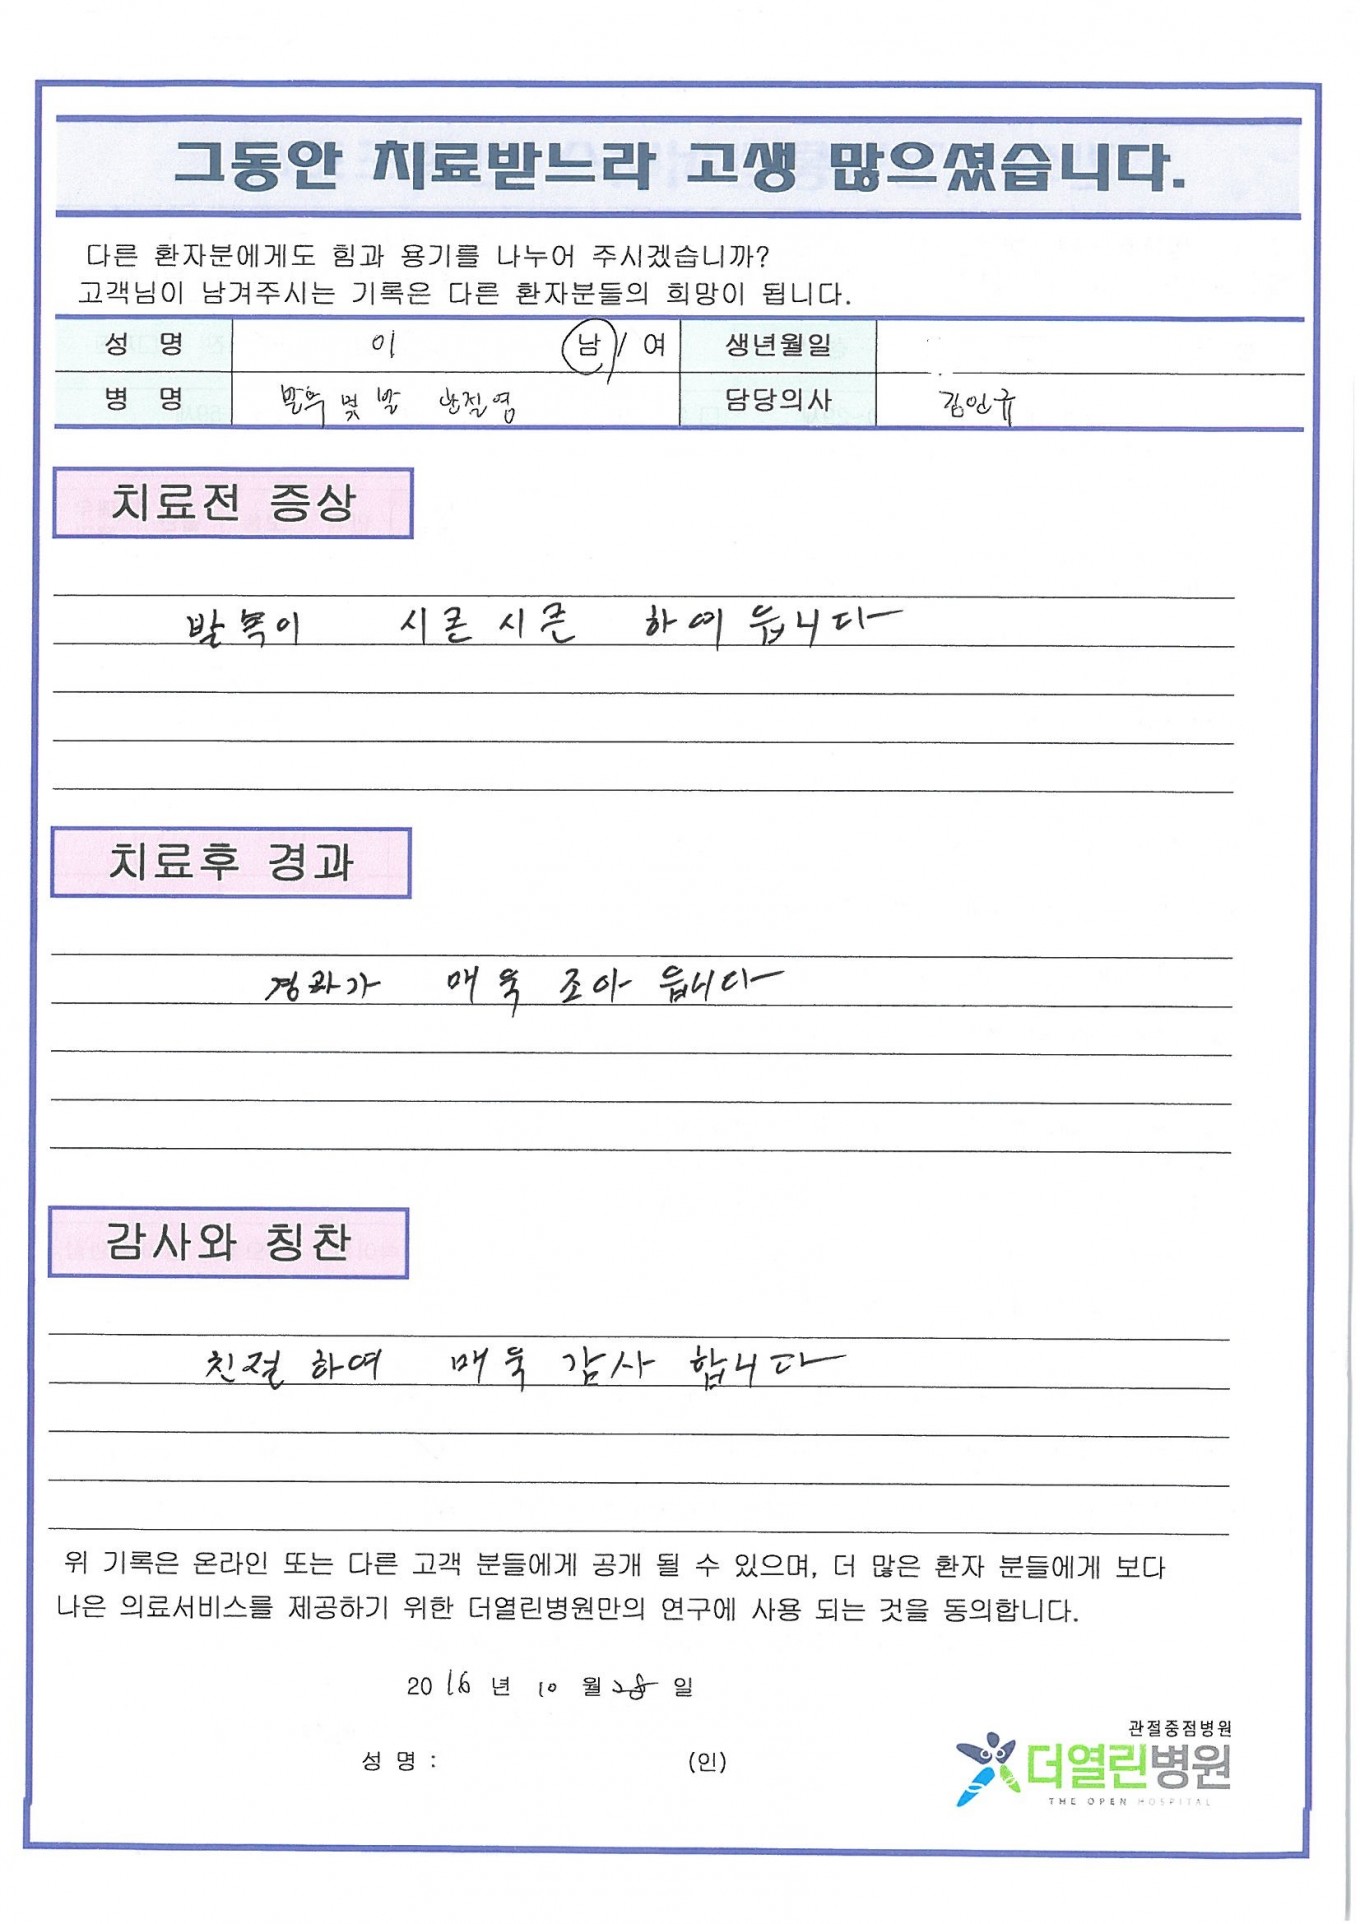 그동안 치료받느라 고생 많으셨습니다.
다른 환자분에게도 힘과 용기를 나누어 주시겠습니까?
고객님이 남겨주시는 기록은 다른 환자분들의 희망이 됩니다.
성 명 이 남 / 여 생년월일
병 명 발목 및 발 관절염 담당의사 김인규
치료전 증상
발목이 시큰시큰 하여 읍니다
치료후 경과
경과가 매욱 조아 읍니다
감사와 칭찬
친절 하여 매욱 감사 합니다
위 기록은 온라인 또는 다른 고객 분들에게 공개 될 수 있으며, 더 많은 환자 분들에게 보다
나은 의료서비스를 제공하기 위한 더열린병원만의 연구에 사용 되는 것을 동의합니다.
2016 년 10 월 28 일
성 명 : (인)
관절중점병원
더열린병원
THE OPEN HOSPITAL